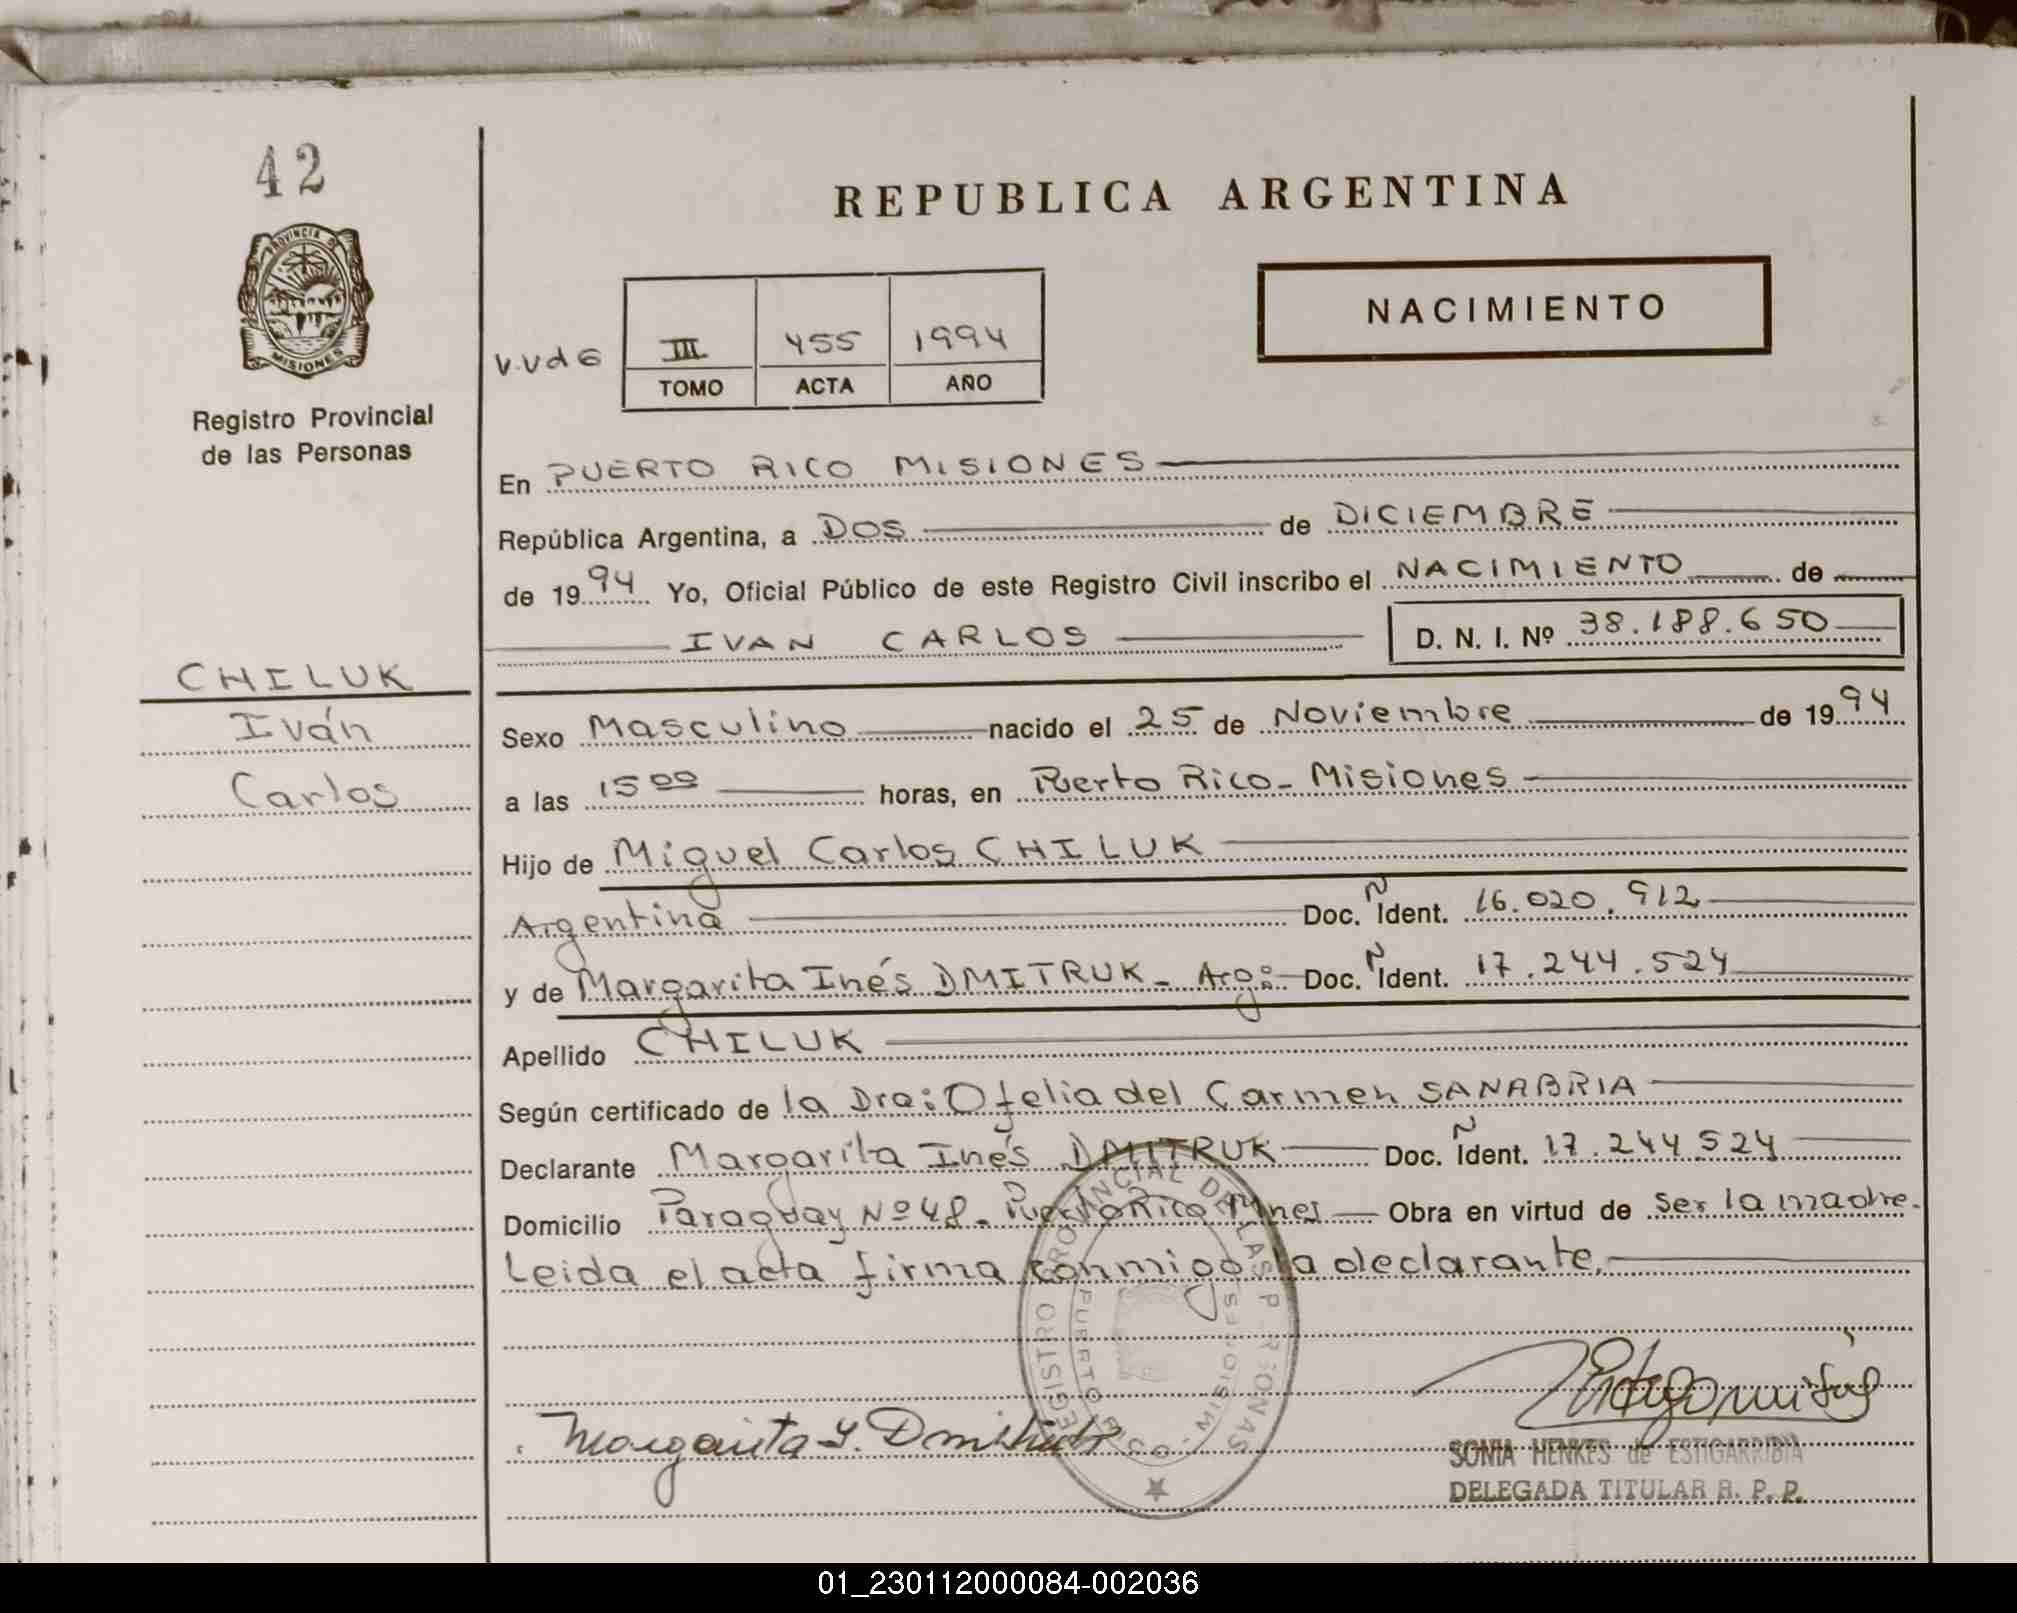 42
PROVINCIA DE
MISIONES
Registro Provincial
de las Personas
REPUBLICA ARGENTINA
NACIMIENTO
V.Vde
III 455 1994
TOMO ACTA AÑO
En PUERTO RICO MISIONES
República Argentina, a DOS de DICIEMBRE
de 1994 Yo, Oficial Público de este Registro Civil inscribo el NACIMIENTO de
IVAN CARLOS D. N. I. Nº 38.188.650
CHILUK
Iván
Carlos
Sexo Masculino nacido el 25 de Noviembre de 1994
a las 15 00 horas, en Puerto Rico - Misiones
Hijo de Miguel Carlos CHILUK
Argentina Doc. Ñ Ident. 16.020.912
y de Margarita Inés DMITRUK - Arg: Doc. Ñ Ident. 17.244.524
Apellido CHILUK
Según certificado de la Dra: Ofelia del Carmen SANABRIA
Declarante Margarita Inés DMITRUK Doc. Ñ Ident. 17.244.524
Domicilio Paraguay Nº 48 - Puerto Rico Mnes Obra en virtud de ser la madre.
Leida el acta firma conmigo la declarante.
REGISTRO PROVINCIAL DE LAS PERSONAS
PUERTO RICO - MISIONES
Margarita I. Dmitruk
SONIA HENKES de ESTIGARRIBIA
DELEGADA TITULAR R. P. P.
01_230112000084-002036